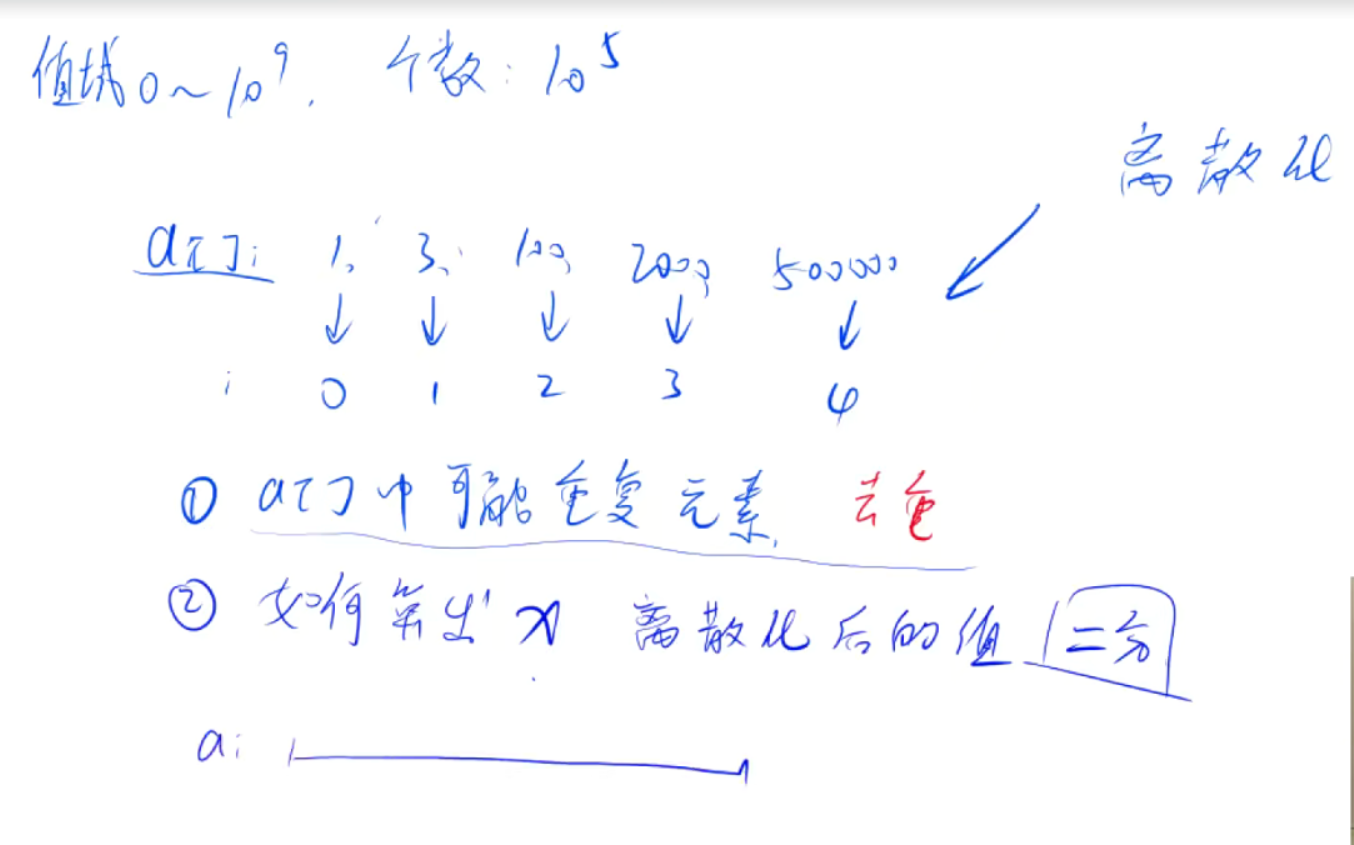 值域0~10⁹. 个数:10⁵
离散化
a[]: 1, 3, 100, 2000, 500000
↓ ↓ ↓ ↓ ↓
i 0 1 2 3 4
① a[]中可能重复元素. 去重
② 如何算出 x 离散化后的值 二分
a: